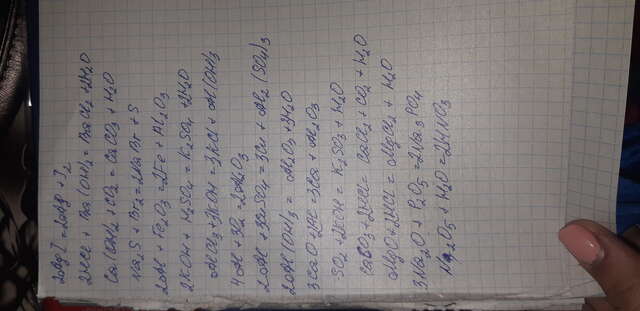 2AgI = 2Ag + I₂
2HCl + Ba(OH)₂ = BaCl₂ + 2H₂O
Ca(OH)₂ + CO₂ = CaCO₃ + H₂O
Na₂S + Br₂ = 2NaBr + S
2Al + Fe₂O₃ = 2Fe + Al₂O₃
2KOH + H₂SO₄ = K₂SO₄ + 2H₂O
AlCl₃ + 3KOH = 3KCl + Al(OH)₃
4Al + 3O₂ = 2Al₂O₃
2Al + 3CuSO₄ = 3Cu + Al₂(SO₄)₃
2Al(OH)₃ = Al₂O₃ + 3H₂O
3CaO + 2Al = 3Ca + Al₂O₃
SO₂ + 2KOH = K₂SO₃ + H₂O
CaCO₃ + 2HCl = CaCl₂ + CO₂ + H₂O
MgO + 2HCl = MgCl₂ + H₂O
3Na₂O + P₂O₅ = 2Na₃PO₄
N₂O₅ + H₂O = 2HNO₃